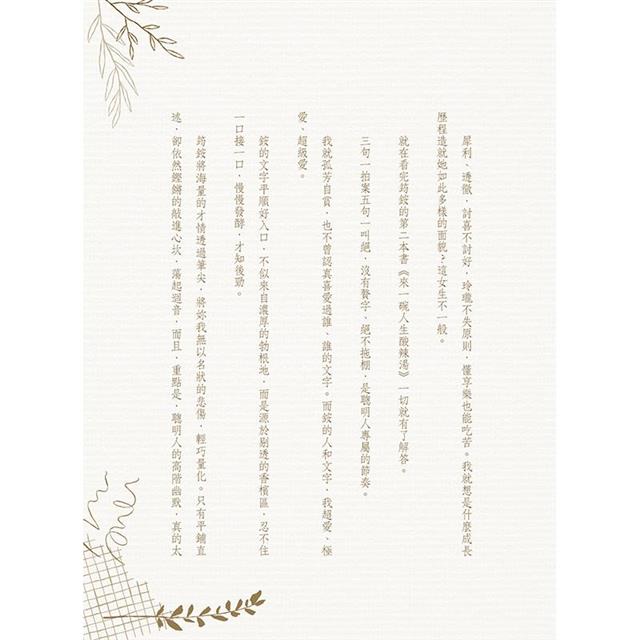 犀利、透徹，討喜不討好，玲瓏不失原則，懂享樂也能吃苦。我就想是什麼成長
歷程造就她如此多樣的面貌？這女生不一般。
就在看完筠銨的第二本書《來一碗人生酸辣湯》一切就有了解答。
三句一拍案五句一叫絕，沒有贅字、絕不拖棚，是聰明人專屬的節奏。
我就孤芳自賞，也不曾認真喜愛過誰、誰的文字。而銨的人和文字，我超愛、極
愛、超級愛。
銨的文字平順好入口，不似來自濃厚的勃根地，而是源於剔透的香檳區，忍不住
一口接一口，慢慢發酵，才知後勁。
筠銨將海量的才情透過筆尖，將妳我無以名狀的悲傷，輕巧量化。只有平鋪直
述，卻依然鏗鏘的敲進心坎，蕩起迴音，而且，重點是，聰明人的高階幽默，真的太